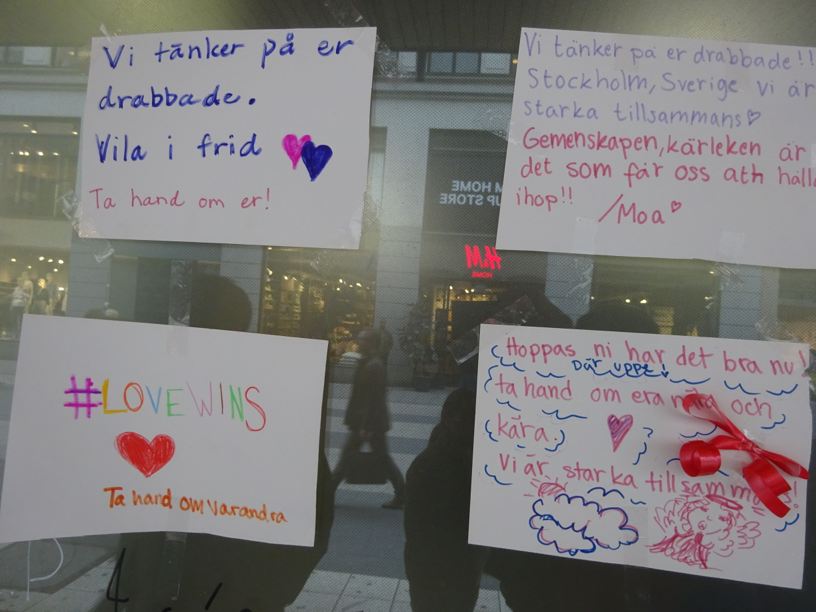 Vi tänker på er
drabbade.
Vila i frid
Ta hand om er!
Vi tänker på er drabbade!!
Stockholm, Sverige vi är
starka tillsammans
Gemenskapen, kärleken är
det som får oss ath hålla
ihop!!
/Moa
HOME
UP STORE
H&M
HOME
#LOVEWINS
Ta hand om varandra
Hoppas ni har det bra nu!
Där uppe!
ta hand om era nära och
kära.
Vi är starka tillsammans!